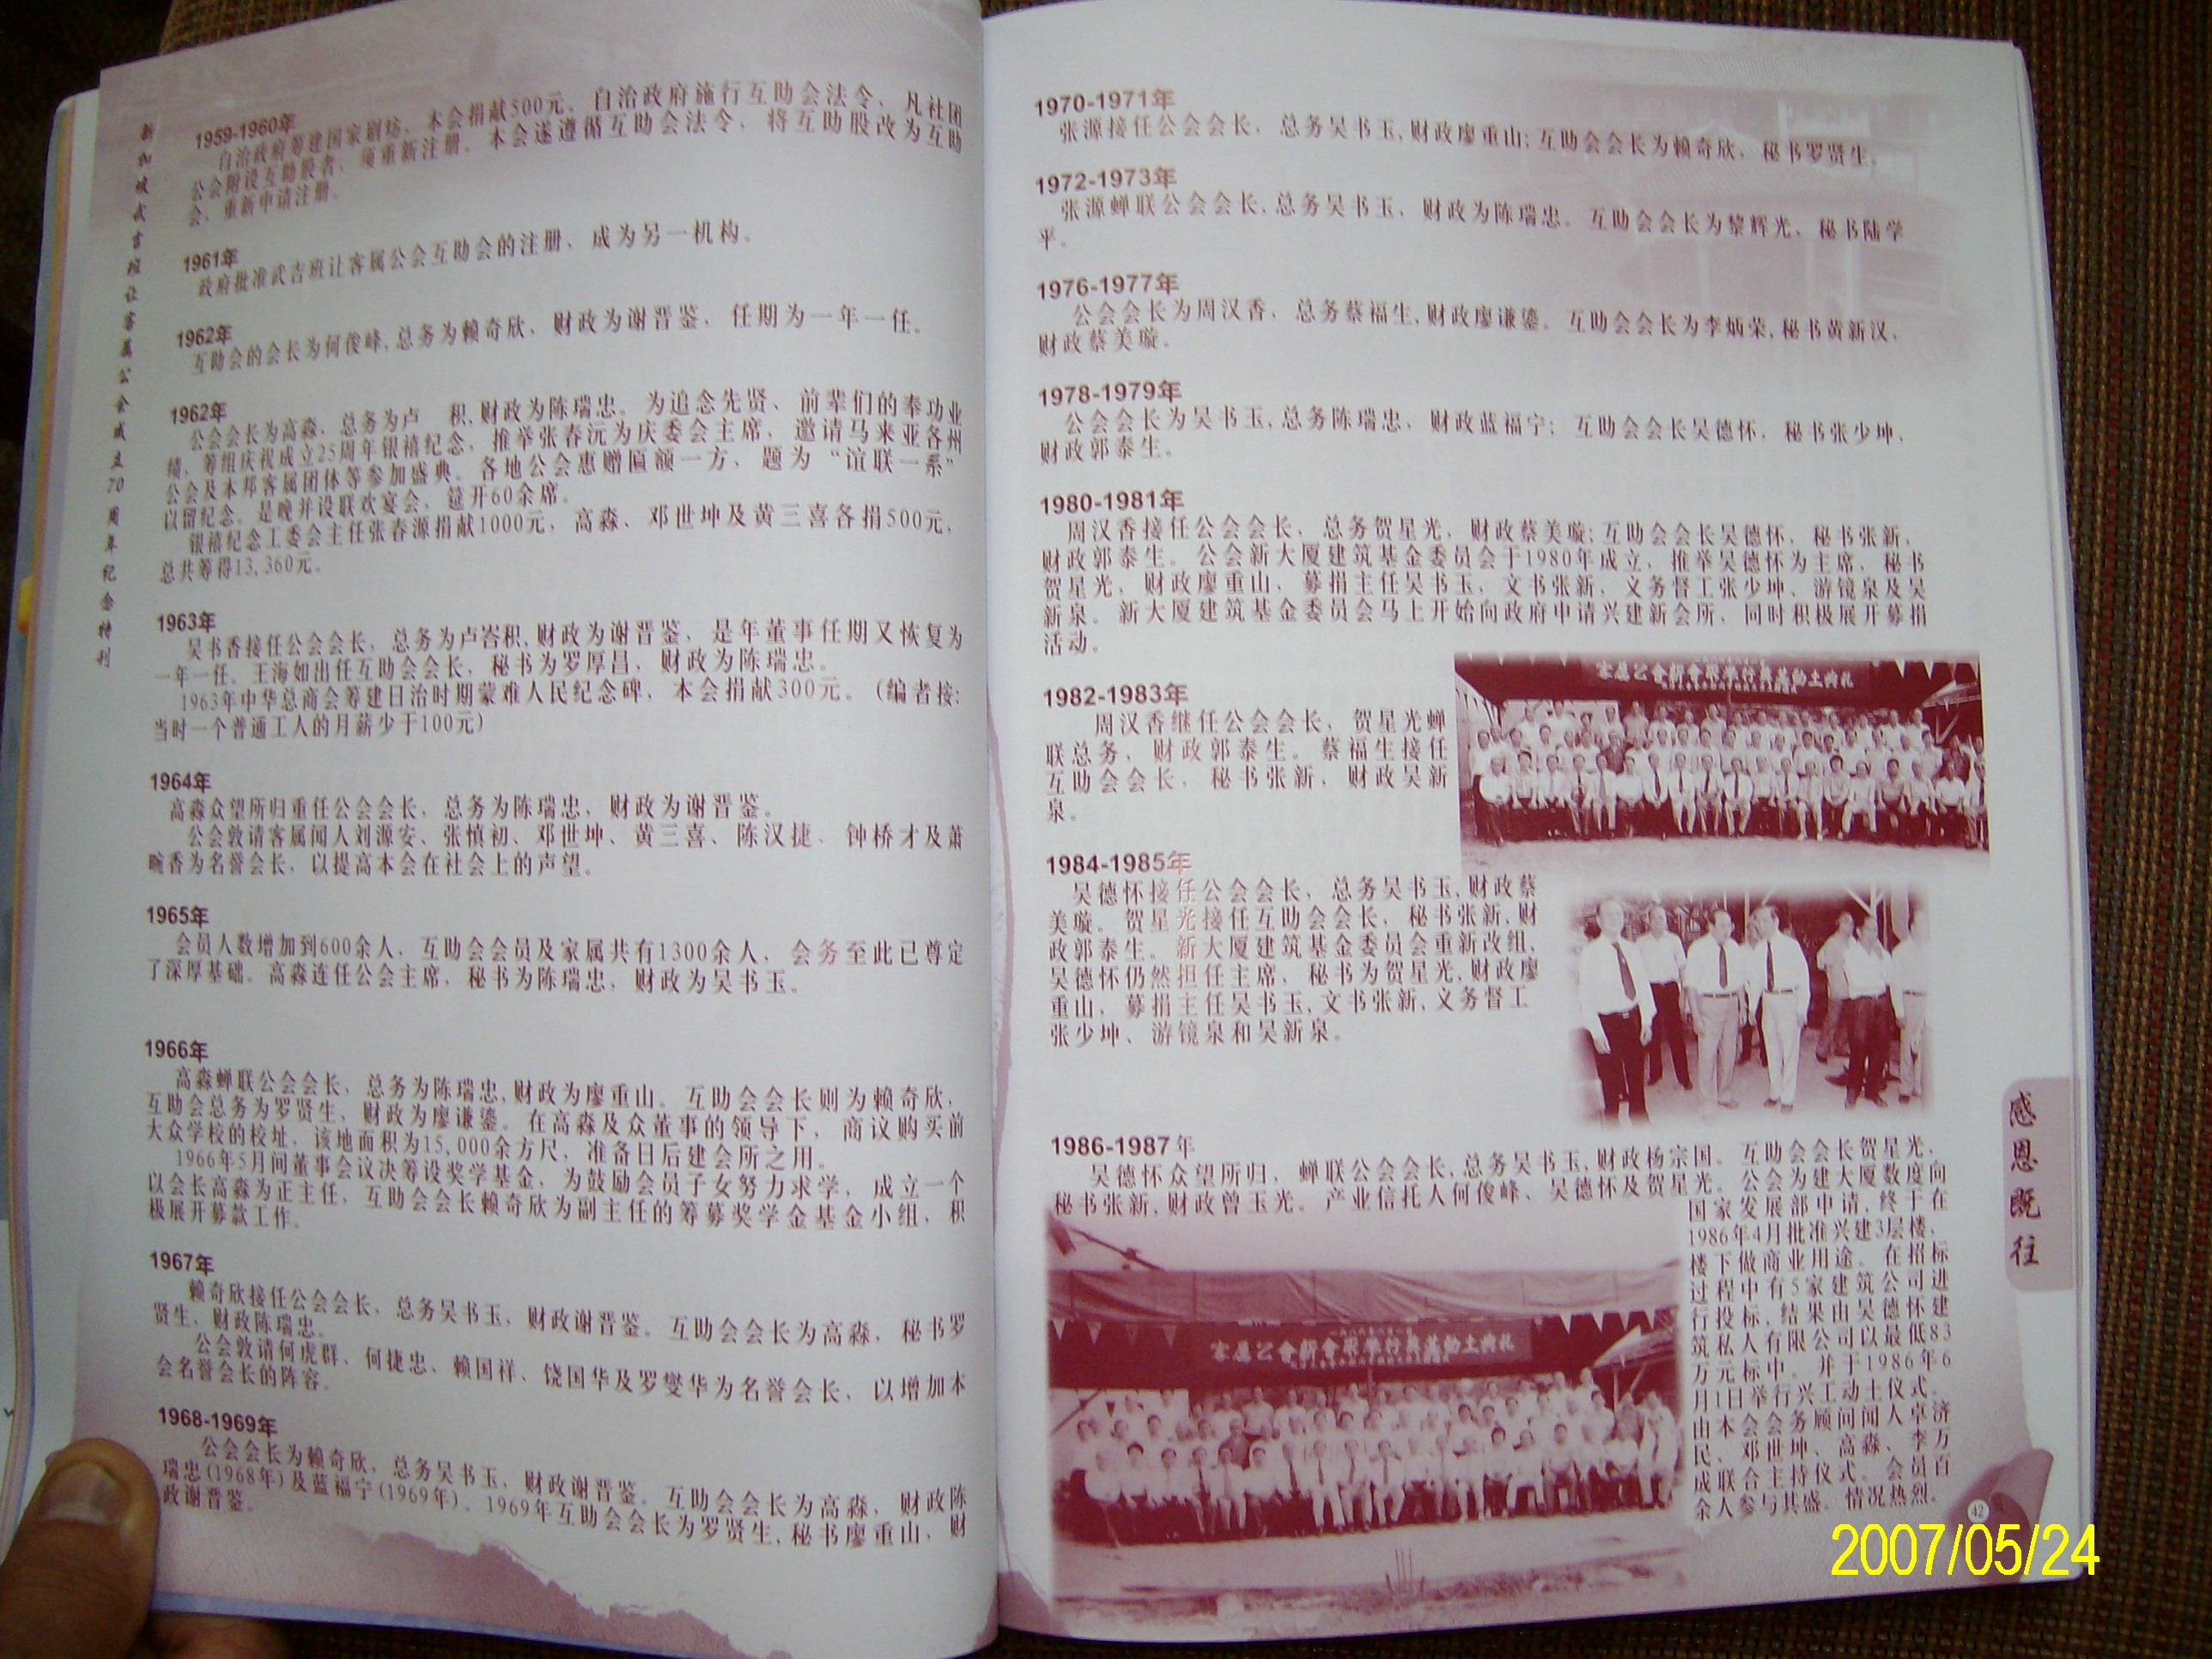 新加坡武吉班让客属公会成立70周年纪念特刊
1959-1960年
自治政府筹建国家剧场，本会捐献500元。自治政府施行互助会法令，凡社团
公会附设互助股者，须重新注册。本会遂遵循互助会法令，将互助股改为互助
会，重新申请注册。
1961年
政府批准武吉班让客属公会互助会的注册，成为另一机构。
1962年
互助会的会长为何俊峰,总务为赖奇欣，财政为谢晋鉴，任期为一年一任。
1962年
公会会长为高淼，总务为卢 积,财政为陈瑞忠。为追念先贤、前辈们的奉功业
绩，筹组庆祝成立25周年银禧纪念，推举张春沅为庆委会主席，邀请马来亚各州
公会及本邦客属团体等参加盛典。各地公会惠赠匾额一方，题为“谊联一系”
以留纪念。是晚并设联欢宴会，筵开60余席。
银禧纪念工委会主任张春源捐献1000元，高淼、邓世坤及黄三喜各捐500元，
总共筹得13,360元。
1963年
吴书香接任公会会长，总务为卢峇积,财政为谢晋鉴，是年董事任期又恢复为
一年一任。王海如出任互助会会长，秘书为罗厚昌，财政为陈瑞忠。
1963年中华总商会筹建日治时期蒙难人民纪念碑，本会捐献300元。(编者按:
当时一个普通工人的月薪少于100元)
1964年
高淼众望所归重任公会会长，总务为陈瑞忠，财政为谢晋鉴。
公会敦请客属闻人刘源安、张慎初、邓世坤、黄三喜、陈汉捷、钟桥才及萧
畹香为名誉会长，以提高本会在社会上的声望。
1965年
会员人数增加到600余人，互助会会员及家属共有1300余人，会务至此已尊定
了深厚基础。高淼连任公会主席，秘书为陈瑞忠，财政为吴书玉。
1966年
高淼蝉联公会会长，总务为陈瑞忠,财政为廖重山。互助会会长则为赖奇欣，
互助会总务为罗贤生，财政为廖谦鎏。在高淼及众董事的领导下，商议购买前
大众学校的校址，该地面积为15,000余方尺，准备日后建会所之用。
1966年5月间董事会议决筹设奖学基金，为鼓励会员子女努力求学，成立一个
以会长高淼为正主任，互助会会长赖奇欣为副主任的筹募奖学金基金小组，积
极展开募款工作。
1967年
赖奇欣接任公会会长，总务吴书玉，财政谢晋鉴。互助会会长为高淼，秘书罗
贤生，财政陈瑞忠。
公会敦请何虎群、何捷忠、赖国祥、饶国华及罗燮华为名誉会长，以增加本
会名誉会长的阵容。
1968-1969年
公会会长为赖奇欣，总务吴书玉，财政谢晋鉴。互助会会长为高淼，财政陈
瑞忠(1968年)及蓝福宁(1969年)。1969年互助会会长为罗贤生,秘书廖重山，财
政谢晋鉴。
1970-1971年
张源接任公会会长，总务吴书玉,财政廖重山;互助会会长为赖奇欣，秘书罗贤生。
1972-1973年
张源蝉联公会会长,总务吴书玉，财政为陈瑞忠。互助会会长为黎辉光，秘书陆学
平。
1976-1977年
公会会长为周汉香，总务蔡福生,财政廖谦鎏。互助会会长为李炳荣,秘书黄新汉，
财政蔡美璇。
1978-1979年
公会会长为吴书玉,总务陈瑞忠，财政蓝福宁；互助会会长吴德怀，秘书张少坤，
财政郭泰生。
1980-1981年
周汉香接任公会会长，总务贺星光，财政蔡美璇;互助会会长吴德怀，秘书张新，
财政郭泰生。公会新大厦建筑基金委员会于1980年成立，推举吴德怀为主席，秘书
贺星光，财政廖重山，募捐主任吴书玉，文书张新，义务督工张少坤、游镜泉及吴
新泉。新大厦建筑基金委员会马上开始向政府申请兴建新会所，同时积极展开募捐
活动。
客属公會新會所舉行奠基動土典礼
1982-1983年
周汉香继任公会会长，贺星光蝉
联总务，财政郭泰生。蔡福生接任
互助会会长，秘书张新，财政吴新
泉。
1984-1985年
吴德怀接任公会会长，总务吴书玉,财政蔡
美璇。贺星光接任互助会会长，秘书张新,财
政郭泰生。新大厦建筑基金委员会重新改组，
吴德怀仍然担任主席，秘书为贺星光,财政廖
重山，募捐主任吴书玉,文书张新,义务督工
张少坤、游镜泉和吴新泉。
1986-1987年
吴德怀众望所归，蝉联公会会长,总务吴书玉,财政杨宗国。互助会会长贺星光，
秘书张新,财政曾玉光。产业信托人何俊峰、吴德怀及贺星光。公会为建大厦数度向
国家发展部申请,终于在
1986年4月批准兴建3层楼，
楼下做商业用途。在招标
过程中有5家建筑公司进
行投标,结果由吴德怀建
筑私人有限公司以最低83
万元标中。并于1986年6
月1日举行兴工动土仪式。
由本会会务顾问闻人卓济
民、邓世坤、高淼、李万
成联合主持仪式。会员百
余人参与其盛。情况热烈。
一九八六年六月一日
客属公會新會所舉行奠基動土典礼
感恩既往
42
2007/05/24